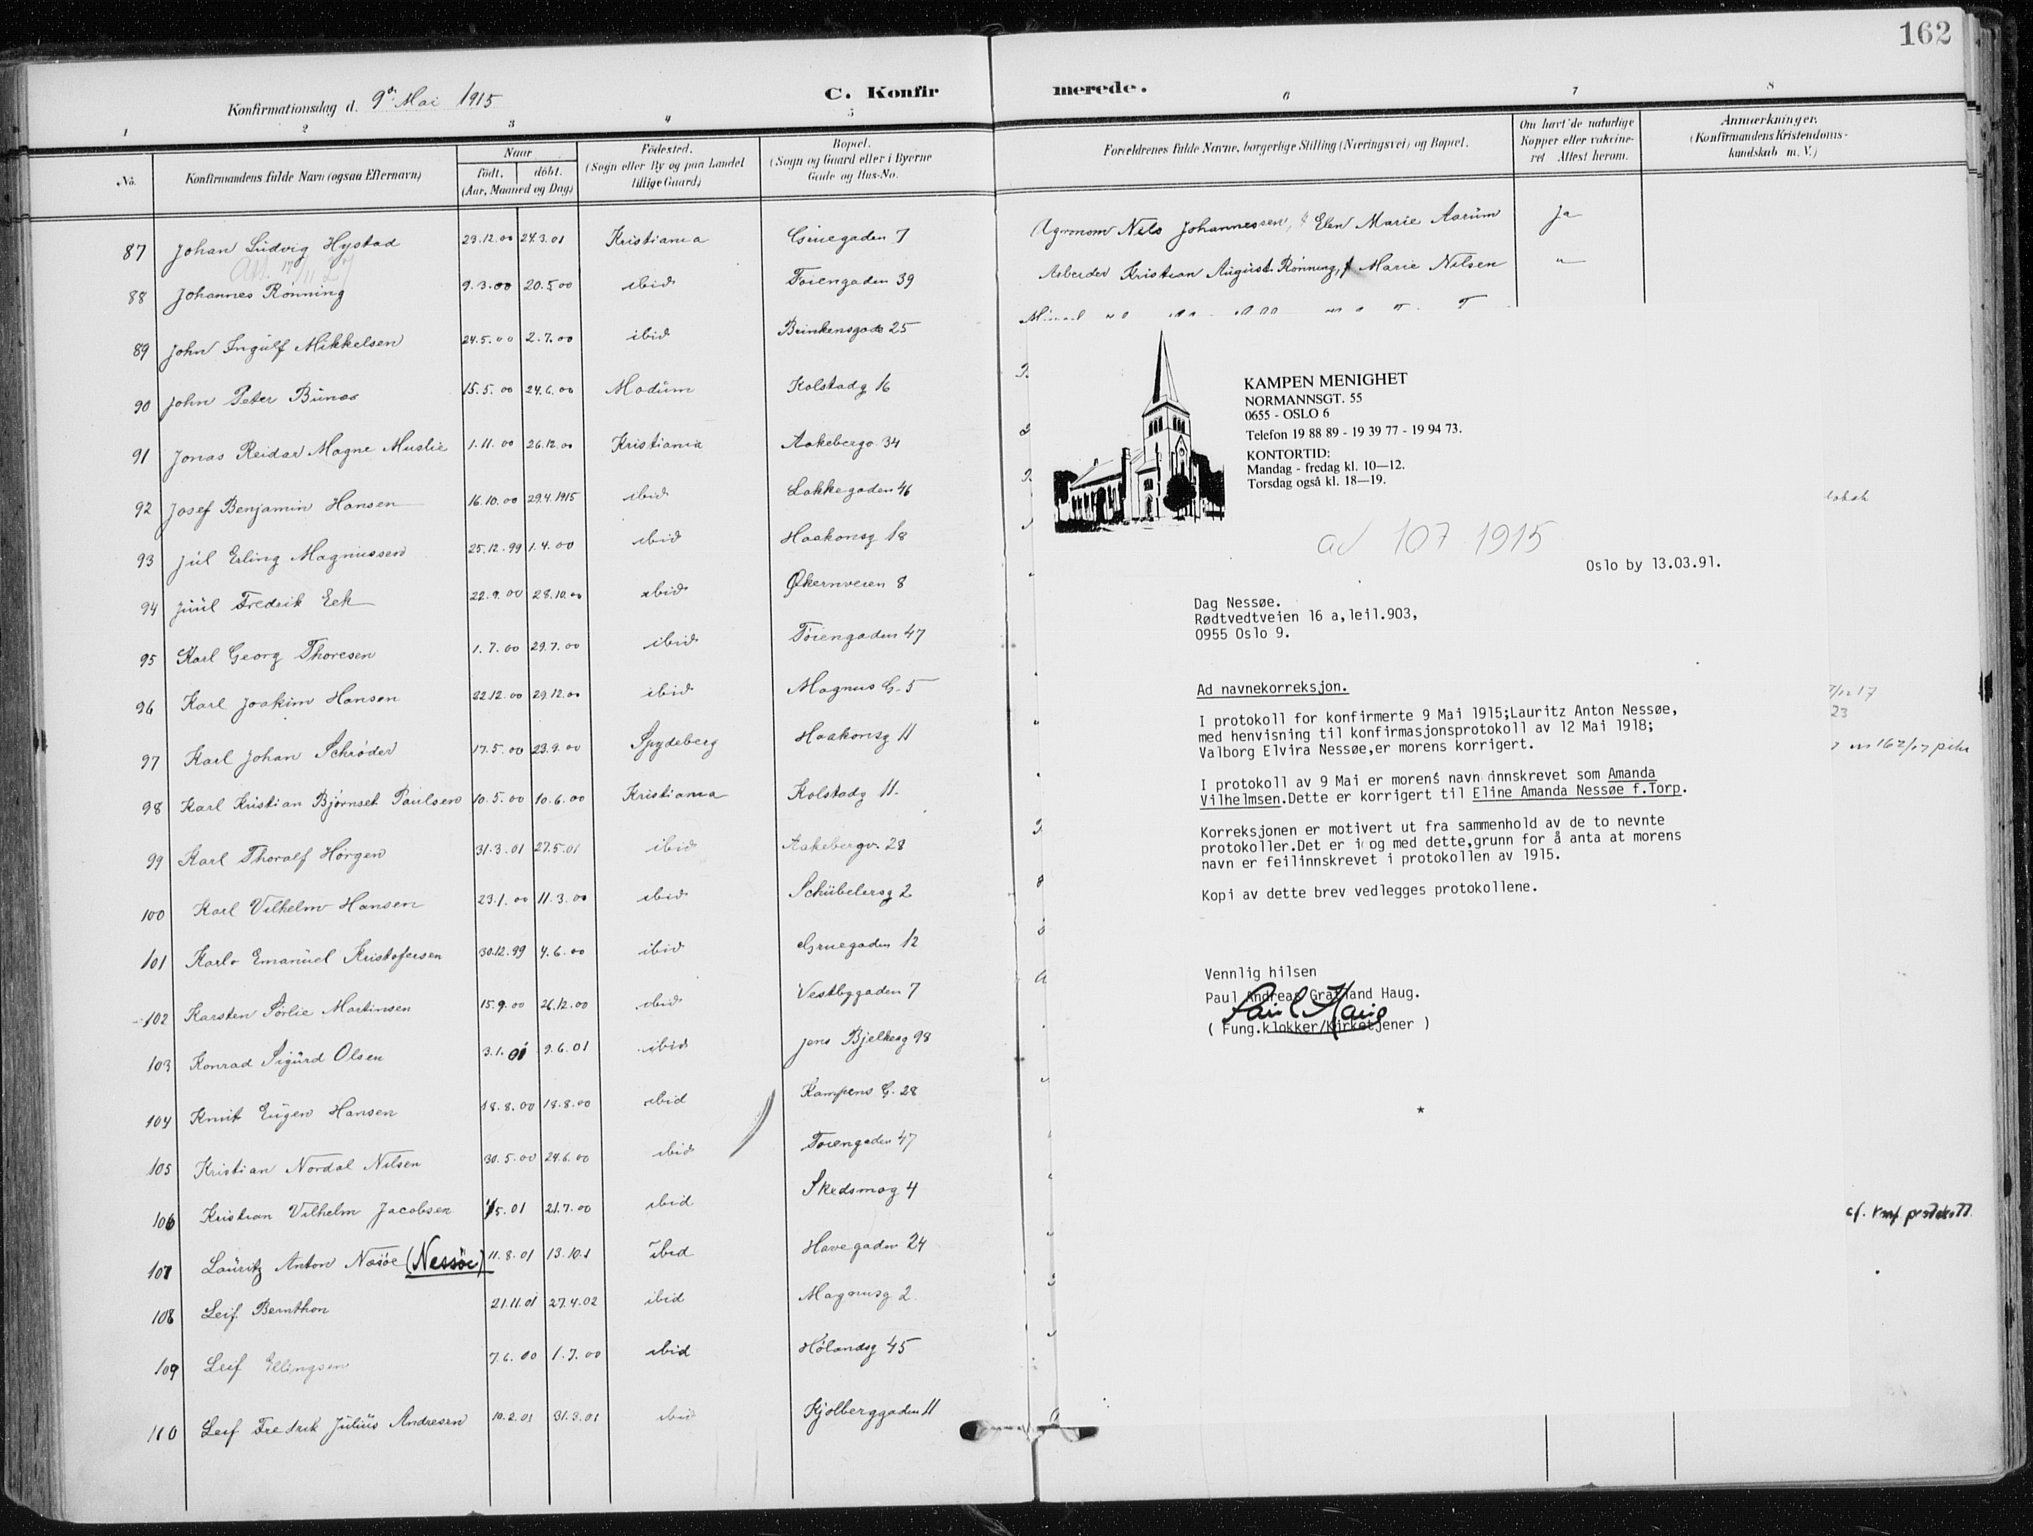 162
Konfirmationsdag d. 9de Mai 1915
C. Konfirmerede.
1 2 3 4 5 6 7 8
No. Konfirmandens fulde Navn (ogsaa Efternavn) Naar født. døbt. (Aar, Maaned og Dag) Fødested. (Sogn eller By og paa Landet tillige Gaard) Bopæl. (Sogn og Gaard eller i Byerne Gade og Hus-No. Forældrenes fulde Navne, borgerlige Stilling (Næringsvei) og Bopæl. Om havt de naturlige Kopper eller vaccineret Attest herom. Anmærkninger. (Konfirmandens Kristendomskundskab m. V.)
87 Johan Ludvig Hystad 23.12.00 24.3.01 Kristiania Gruegaden 7 Agronom Nils Johannessen, & Elen Marie Aarum Ja
88 Johannes Rønning 9.3.00 20.5.00 ibid Tøiengaden 39 Arbeider Kristian August Rønning, & Marie Nilsen "
89 John Ingulf Mikkelsen 24.5.00 2.7.00 ibid Brinkensgade 25
90 John Peter Bunæs 15.5.00 24.6.00 Modum Kolstadg 16
91 Jonas Reidar Magne Muslie 1.11.00 26.12.00 Kristiania Aakebergv. 34
92 Josef Benjamin Hansen 16.10.00 29.4.1915 ibid Lakkegaden 46
93 Jul Erling Magnussen 25.12.99 1.4.00 ibid Haakonsg 18
94 Juul Fredrik Eek 22.9.00 28.10.00 ibid Økernveien 8
95 Karl Georg Thoresen 1.7.00 29.7.00 ibid Tøiengaden 47
96 Karl Joakim Hansen 22.12.00 29.12.00 ibid Magnus G. 5
97 Karl Johan Schrøder 17.5.00 23.9.00 Spydeberg Haakonsg 11
98 Karl Kristian Bjørnset Paulsen 10.5.00 10.6.00 Kristiania Kolstadg 11.
99 Karl Thoralf Hørgen 31.3.01 27.5.01 ibid Aakebergv. 28
100 Karl Vilhelm Hansen 23.1.00 11.3.00 ibid Schübelersg 2
101 Karlo Emanuel Kristofersen 30.12.99 4.6.00 ibid Gruegaden 12
102 Karsten Sørlie Martinsen 15.9.00 26.12.00 ibid Vestbygaden 7
103 Konrad Sigurd Olsen 3.1.01 9.6.01 ibid Jens Bjelkesg 98
104 Knut Eugen Hansen 18.8.00 18.8.00 ibid Kampens G. 28
105 Kristian Nordal Nilsen 30.5.00 24.6.00 ibid Tøiengaden 47
106 Kristian Vilhelm Jacobsen 5.01 21.7.00 ibid Skedsmog 4
107 Lauritz Anton Næsøe (Nessøe) 11.8.01 13.10.1 ibid Havegaden 24
108 Leif Bernthon 21.11.01 27.4.02 ibid Magnusg 2.
109 Leif Ellingsen 7.6.00 1.7.00 ibid Hølandsg 45
110 Leif Fredrik Julius Andresen 10.2.01 31.3.01 ibid Kjølberggaden 11
KAMPEN MENIGHET
NORMANNSGT. 55
0655 - OSLO 6
Telefon 19 88 89 - 19 39 77 - 19 94 73.
KONTORTID:
Mandag - fredag kl. 10—12.
Torsdag også kl. 18—19.
ad 107 1915
Oslo by 13.03.91.
Dag Nessøe.
Rødtvedtveien 16 a,leil.903,
0955 Oslo 9.
Ad navnekorreksjon.
I protokoll for konfirmerte 9 Mai 1915;Lauritz Anton Nessøe,
med henvisning til konfirmasjonsprotokoll av 12 Mai 1918;
Valborg Elvira Nessøe,er morens korrigert.
I protokoll av 9 Mai er morens navn innskrevet som Amanda
Vilhelmsen.Dette er korrigert til Eline Amanda Nessøe f.Torp.
Korreksjonen er motivert ut fra sammenhold av de to nevnte
protokoller.Det er i og med dette,grunn for å anta at morens
navn er feilinnskrevet i protokollen av 1915.
Kopi av dette brev vedlegges protokollene.
Vennlig hilsen
Paul Andreas Gratland Haug.
Paul Haug
( Fung.klokker/Kirketjener )
*
cf. konf protokoll